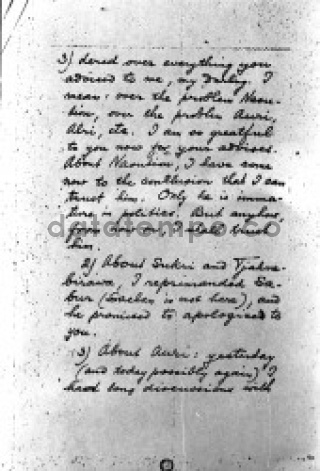 3) dered over everything you
advised to me, my darling. I
mean: over the problem Nasu-
tion, over the problem Auri,
Alri, etc. I am so greatful
to you now for your advises.
About Nasution, I have come
now to the conclusion that I can
trust him. Only he is imma-
ture in politics. But anyhow,
from now on, I shall trust
him.
2) About Sukri and Tjakra-
birawa, I reprimanded Sa-
bur (Saelan is not here), and
he promised to apologise to
you.
(3) About Auri: yesterday
(and today possibly again) I
had long discussions with
datatempo.co